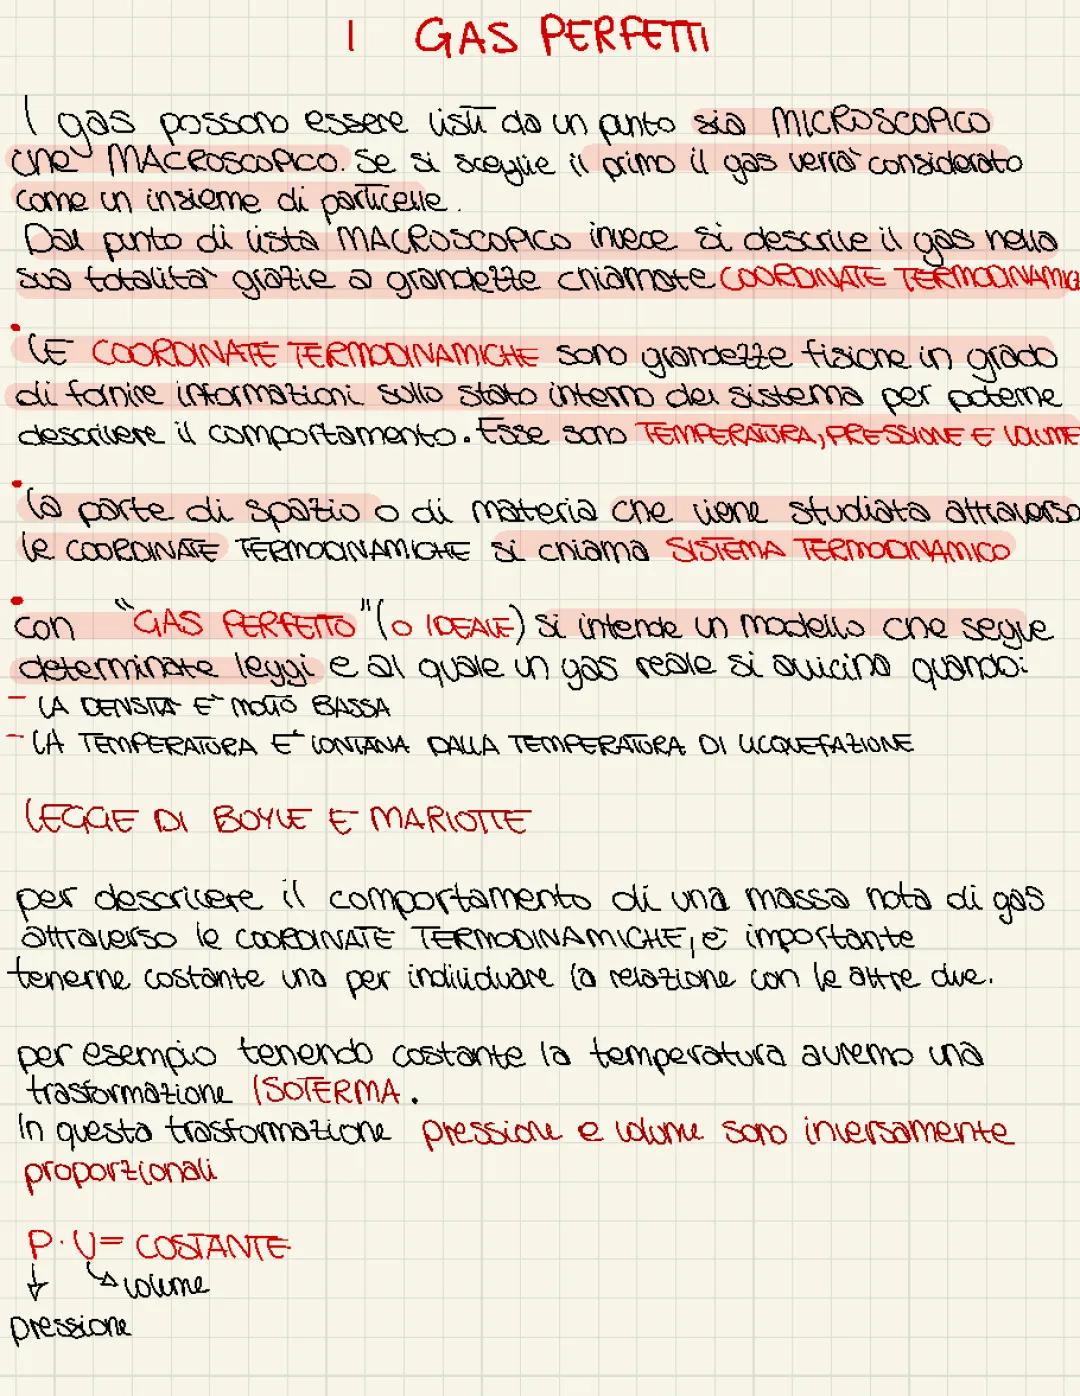 I GAS PERFETTI
I gas possono essere visti da un punto sia MICROSCOPICO
che MACROSCOPICO. Se si sceglie il primo il gas verrà considerato
come un insieme di particelle.
Dal punto di vista MACROSCOPICO invece si descrive il gas nella
sua totalità grazie a grandezze chiamate COORDINATE TERMODINAMICHE
• LE COORDINATE TERMODINAMICHE sono grandezze fisiche in grado
di fornire informazioni sullo stato interno del sistema per poterne
descrivere il comportamento. Esse sono TEMPERATURA, PRESSIONE E VOLUME
• la parte di spazio o di materia che viene studiata attraverso
le COORDINATE TERMODINAMICHE si chiama SISTEMA TERMODINAMICO
• con "GAS PERFETTO" (o IDEALE) si intende un modello che segue
determinate leggi e al quale un gas reale si avvicina quando:
- LA DENSITÀ E' MOLTO BASSA
- LA TEMPERATURA E' LONTANA DALLA TEMPERATURA DI LICQUEFAZIONE
LEGGE DI BOYLE E MARIOTTE
per descrivere il comportamento di una massa nota di gas
attraverso le COORDINATE TERMODINAMICHE, è importante
tenerne costante una per individuare la relazione con le altre due.
per esempio tenendo costante la temperatura avremo una
trasformazione ISOTERMA.
In questa trasformazione pressione e volume sono inversamente
proporzionali
P · V = COSTANTE
volume
pressione